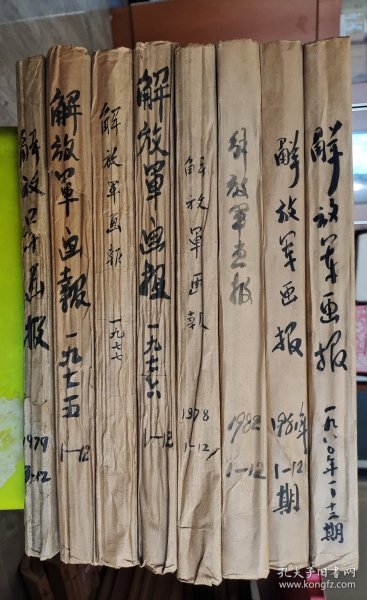 解放军画报
1979
1-12
解放軍画報
一九七五
1-12
解放军画報
一九七七
解放軍画报
一九七六
1-12
解放軍画報
1978
1-12
解放军画报
1982
1-12
解放军画报
1981年
1-12
期
解放军画报
一九八〇年一-十二期
孔夫子旧书网
www.kongfz.com